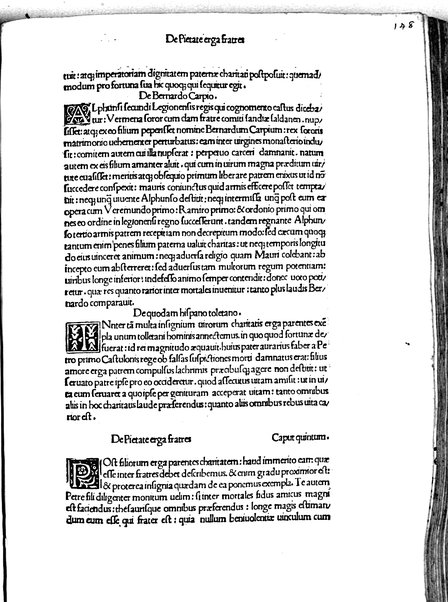 148
De Pietate erga fratres
tuit: atq; imperatoriam dignitatem paternæ charitati postposuit: quemad/
modum pro fortuna sua hic quoq; qui sequitur egit.
De Bernardo Carpio.
ALphunsi secundi Legionensis regis qui cognomento castus diceba/
tur: Vermena soror cum clam fratre comiti sandiæ saldaneñ. nup/
sisset: atq; ex eo filium peperisset nomine Bernardum Carpium: rex sororis
matrimonio uehementer perturbatus: eam inter uirgines monasterio inclu/
sit: comitem autem cui illa nupserat: perpetuo carceri damnauit. natum
autem ex eis filium amanter aluit. qui cum in uirum magna præditum uir/
tute euasisset: meritis atq; obsequio primum liberare patrem enixus ut id nō
succedere conspexit: mauris coniunctus quid armis efficere posset tempta/
uit: neq; unq̄ uiuente Alphunso destitit: neq; intermissa unq̄ post eum ea
opera cum Veremundo primo: Ramiro primo: & ordonio primo qui om
nes eo ordine in legionensi regno successerunt. tandem regnante Alphun/
so tertio armis patrem recepit iam non decrepitum modo: sed cæcum quoq;
tantum enim penes filium paterna ualuit charitas: ut neq; temporis longitu
do eius uinceret animum: neq; aduersa religio quam Mauri colebant: ab
incepto eum absterreret: sed aduersus tam multorum regum potentiam:
uiribus longe inferior: indefesso animo semper contendit: donec uoto poti/
retur. quæ res quanto rarior inter mortales inuenitur: tanto plus laudis Ber/
nardo comparauit.
De quodam hispano toletano.
INnter tā multa insignium uirorum charitatis erga parentes exē/
pla unum tolletani hominis annectemus. in quo quod fortunæ de/
fuerat: id rei magnitudo æquauit. huius pater aurarius faber a Pe
tro primo Castulonis rege ob falsas suspitiones morti damnatus erat: filius
amore erga patrem compulsus lachrimis præcibusq; agere non destitit: ut
seruato patre ipse pro eo occideretur. quod assecutus uitam amisit: ut in ui/
ta eum seruaret a quo ipse per genituram acceperat uitam: tanto omnibus
aliis in hoc charitatis laude præferendus: quanto aliis omnibus rebus uita ca/
rior est.
De Pietate erga fratres Caput quintum.
POst filiorum erga parentes charitatem: haud immerito eam: quæ
esse inter fratres debet describemus. & enim gradu proximior est:
& propterea insignia quædam de ea ponemus exempla. Te autem
Petre fili diligenter monitum uelim: si inter mortales fidus amicus magni
est faciendus: thesaurisque omnibus præferendus: longe magis estiman/
dum eum esse qui frater est: quia nullum beniuolentiæ uinculum cum